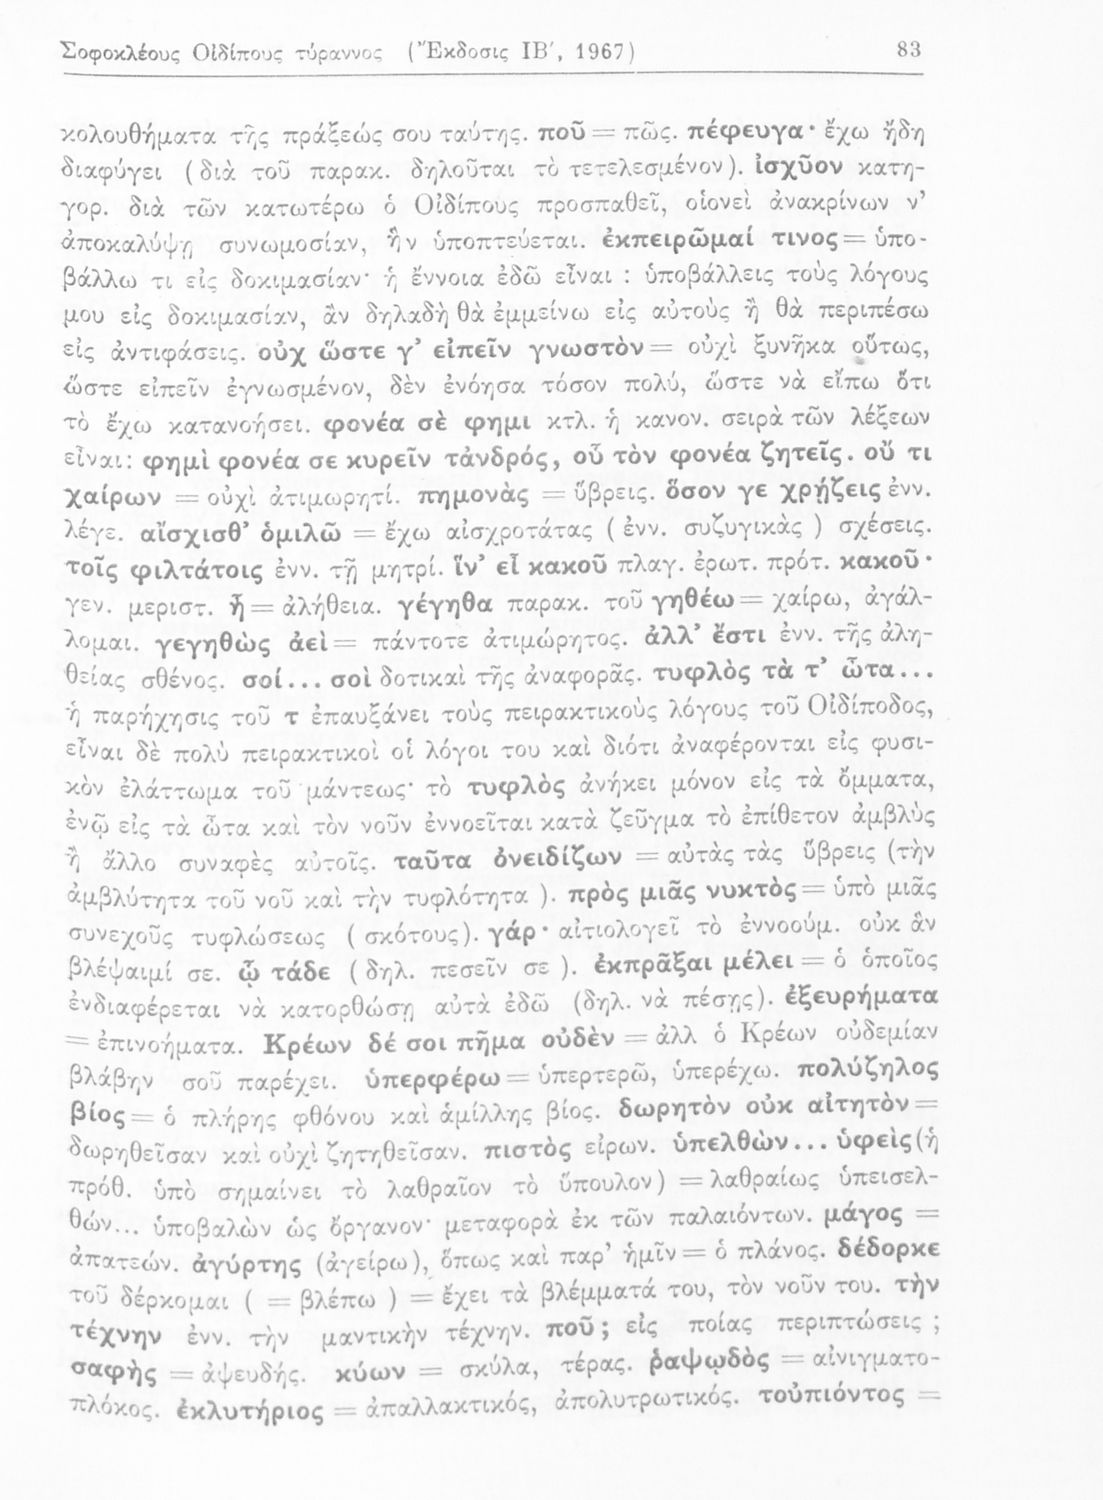 Σοφοκλέους Οἰδίπους τύραννος (Ἔκδοσις ΙΒ', 1967) 83
κολουθήματα τῆς πράξεώς σου ταύτης. ποῦ = πῶς. πέφευγα· ἔχω ἤδη
διαφύγει (διὰ τοῦ παρακ. δηλοῦται τὸ τετελεσμένον). ἰσχῦον κατη-
γορ. διὰ τῶν κατωτέρω ὁ Οἰδίπους προσπαθεῖ, οἱονεὶ ἀνακρίνων ν'
ἀποκαλύψῃ συνωμοσίαν, ἣν ὑποπτεύεται. ἐκπειρῶμαί τινος = ὑπο-
βάλλω τι εἰς δοκιμασίαν· ἡ ἔννοια ἐδῶ εἶναι : ὑποβάλλεις τοὺς λόγους
μου εἰς δοκιμασίαν, ἂν δηλαδὴ θὰ ἐμμείνω εἰς αὐτοὺς ἢ θὰ περιπέσω
εἰς ἀντιφάσεις. οὐχ ὥστε γ' εἰπεῖν γνωστὸν = οὐχὶ ξυνῆκα οὕτως,
ὥστε εἰπεῖν ἐγνωσμένον, δὲν ἐνόησα τόσον πολύ, ὥστε νὰ εἴπω ὅτι
τὸ ἔχω κατανοήσει. φονέα σὲ φημι κτλ. ἡ κανον. σειρὰ τῶν λέξεων
εἶναι: φημὶ φονέα σε κυρεῖν τἀνδρός, οὗ τὸν φονέα ζητεῖς. οὔ τι
χαίρων = οὐχὶ ἀτιμωρητί. πημονὰς = ὕβρεις. ὅσον γε χρῄζεις ἐνν.
λέγε. αἴσχισθ' ὁμιλῶ = ἔχω αἰσχροτάτας (ἐνν. συζυγικὰς) σχέσεις.
τοῖς φιλτάτοις ἐνν. τῇ μητρί. ἵν' εἶ κακοῦ πλαγ. ἐρωτ. πρότ. κακοῦ·
γεν. μεριστ. ἦ = ἀλήθεια. γέγηθα παρακ. τοῦ γηθέω = χαίρω, ἀγάλ-
λομαι. γεγηθὼς ἀεὶ = πάντοτε ἀτιμώρητος. ἀλλ' ἔστι ἐνν. τῆς ἀλη-
θείας σθένος. σοί... σοὶ δοτικαὶ τῆς ἀναφορᾶς. τυφλὸς τὰ τ' ὦτα...
ἡ παρήχησις τοῦ τ ἐπαυξάνει τοὺς πειρακτικοὺς λόγους τοῦ Οἰδίποδος,
εἶναι δὲ πολὺ πειρακτικοὶ οἱ λόγοι του καὶ διότι ἀναφέρονται εἰς φυσι-
κὸν ἐλάττωμα τοῦ μάντεως· τὸ τυφλὸς ἀνήκει μόνον εἰς τὰ ὄμματα,
ἐνῷ εἰς τὰ ὦτα καὶ τὸν νοῦν ἐννοεῖται κατὰ ζεῦγμα τὸ ἐπίθετον ἀμβλὺς
ἢ ἄλλο συναφὲς αὐτοῖς. ταῦτα ὀνειδίζων = αὐτὰς τὰς ὕβρεις (τὴν
ἀμβλύτητα τοῦ νοῦ καὶ τὴν τυφλότητα). πρὸς μιᾶς νυκτὸς = ὑπὸ μιᾶς
συνεχοῦς τυφλώσεως (σκότους). γάρ· αἰτιολογεῖ τὸ ἐννοούμ. οὐκ ἂν
βλέψαιμί σε. ᾧ τάδε (δηλ. πεσεῖν σε). ἐκπρᾶξαι μέλει = ὁ ὁποῖος
ἐνδιαφέρεται νὰ κατορθώσῃ αὐτὰ ἐδῶ (δηλ. νὰ πέσῃς). ἐξευρήματα
= ἐπινοήματα. Κρέων δέ σοι πῆμα οὐδὲν = ἀλλ ὁ Κρέων οὐδεμίαν
βλάβην σοῦ παρέχει. ὑπερφέρω = ὑπερτερῶ, ὑπερέχω. πολύζηλος
βίος = ὁ πλήρης φθόνου καὶ ἁμίλλης βίος. δωρητὸν οὐκ αἰτητὸν =
δωρηθεῖσαν καὶ οὐχὶ ζητηθεῖσαν. πιστὸς εἰρων. ὑπελθὼν... ὑφεὶς (ἡ
πρόθ. ὑπὸ σημαίνει τὸ λαθραῖον τὸ ὕπουλον) = λαθραίως ὑπεισελ-
θών... ὑποβαλὼν ὡς ὄργανον· μεταφορὰ ἐκ τῶν παλαιόντων. μάγος =
ἀπατεών. ἀγύρτης (ἀγείρω), ὅπως καὶ παρ' ἡμῖν = ὁ πλάνος. δέδορκε
τοῦ δέρκομαι ( = βλέπω ) = ἔχει τὰ βλέμματά του, τὸν νοῦν του. τὴν
τέχνην ἐνν. τὴν μαντικὴν τέχνην. ποῦ; εἰς ποίας περιπτώσεις ;
σαφὴς = ἀψευδής. κύων = σκύλα, τέρας. ῥαψῳδὸς = αἰνιγματο-
πλόκος. ἐκλυτήριος = ἀπαλλακτικός, ἀπολυτρωτικός. τοὐπιόντος =